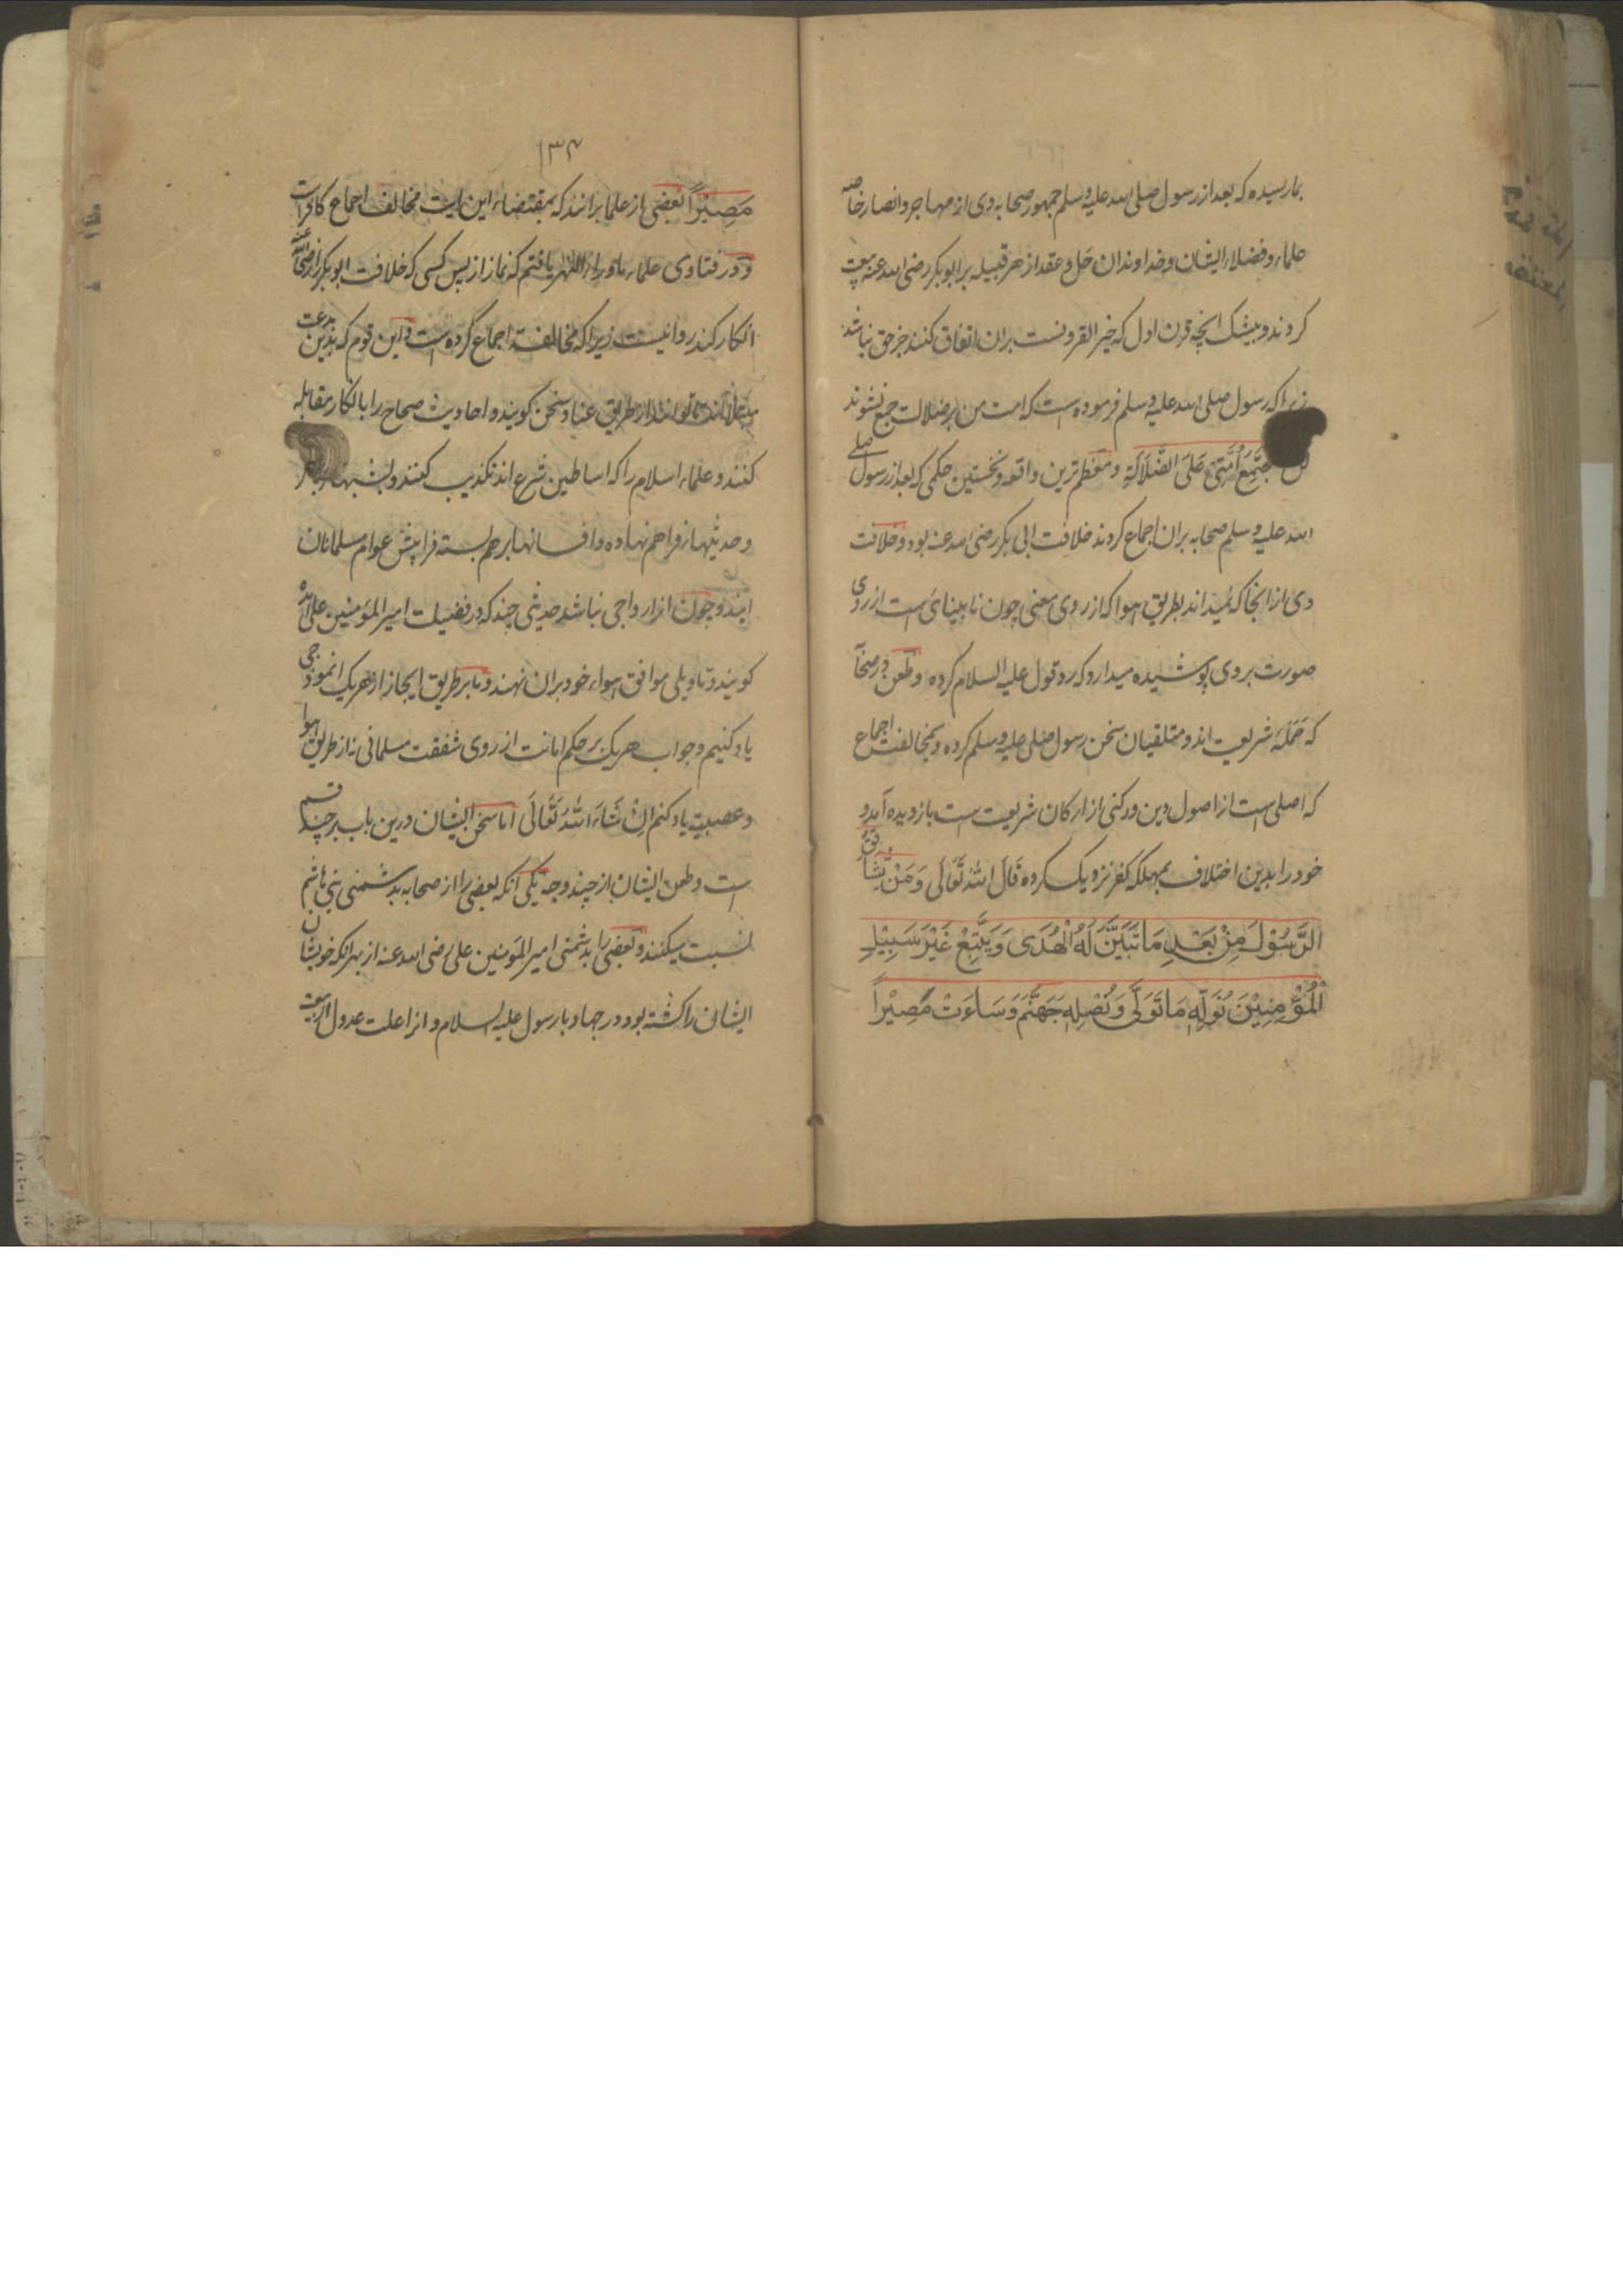 بما رسیده که بعد از رسول صلی الله علیه وسلم جمهور صحابه وی از مهاجر و انصار خاصه
علماء و فضلاء ایشان و خداوندان حل و عقد از هر قبیله بر ابوبکر رضی الله عنه بیعت
کردند و بیشک انچه قرن اول که خیر القرونست بران اتفاق کنند جز حق نباشد
زیرا که رسول صلی الله علیه وسلم فرموده است که امت من بر ضلالت جمع نشوند
لن تجتمع اُمَّتِی عَلَی الضَّلَالَةِ و معظم ترین واقعه و نخستین حکمی که بعد از رسول صلی
الله علیه وسلم صحابه بران اجماع کردند خلافت ابی بکر رضی الله عنه بود و خلافت
وی از انجا که میداند بطریق هوا که از روی معنی چون نابینائی است از روی
صورت بر وی پوشیده میدارد که رد قول علیه السلام کرده و طعن در صحابه
که حَمَلَه شریعت اند و متلقیان سخن رسول صلی علیه وسلم کرده و بمخالفت اجماع
که اصلی است از اصول دین و رکنی از ارکان شریعت است باز دیده آمد و
خود را بدین اختلاف بمهلکه کفر نزدیک کرده قَالَ اللهُ تَعَالَی وَمَنْ یُّشَاقِقِ
الرَّسُوْلَ مِنْ بَعْدِ مَا تَبَیَّنَ لَهُ الْهُدَی وَیَتَّبِعْ غَیْرَ سَبِیْلِ
الْمُؤْمِنِیْنَ نُوَلِّهٖ مَا تَوَلَّی وَنُصْلِهٖ جَهَنَّمَ وَسَاءَتْ مَصِیْراً
۱۳۴
مَصِیْراً بعضی از علما برانند که بمقتضاء این ایت مخالف اجماع کافر است
و در فتاوی علماء ماوراء النهر یافتم که نماز از پس کسی که خلافت ابوبکر را رضی الله عنه
انکار کند روا نیست زیرا که مخالفت اجماع کرده است و این قوم که بدین بدعت
مبتلا اند تا توانند از طریق عناد سخن کویند و احادیث صحاح را بانکار مقابله
کنند و علماء اسلام را که اساطین شرع اند تکذیب کنند و بشبهها
و حدیثها فراهم نهاده و افسانها بر هم بسته فرا پیش عوام مسلمانان
ایند و چون انرا رواجی نباشد حدیثی چند که در فضیلت امیر المؤمنین علی امده
کویند و تاویلی موافق هواء خود بران نهند و ما بر طریق ایجاز از هر یک انموذجی
یاد کنیم و جواب هر یک بر حکم امانت از روی شفقت مسلمانی نه از طریق هوا
و عصبیة یاد کنم اِنْ شَاءَ اللهُ تَعَالَی اما سخن ایشان درین باب بر چند قسم
است و طعن ایشان از چند وجه یکی انکه بعضی را از صحابه بدشمنی بنی هاشم
نسبت میکنند و بعضی را بدشمنی امیر المؤمنین علی رضی الله عنه از بهر انکه خویشان
ایشان را کشته بود در جهاد با رسول علیه السلام و انرا علت عدول از بیعت